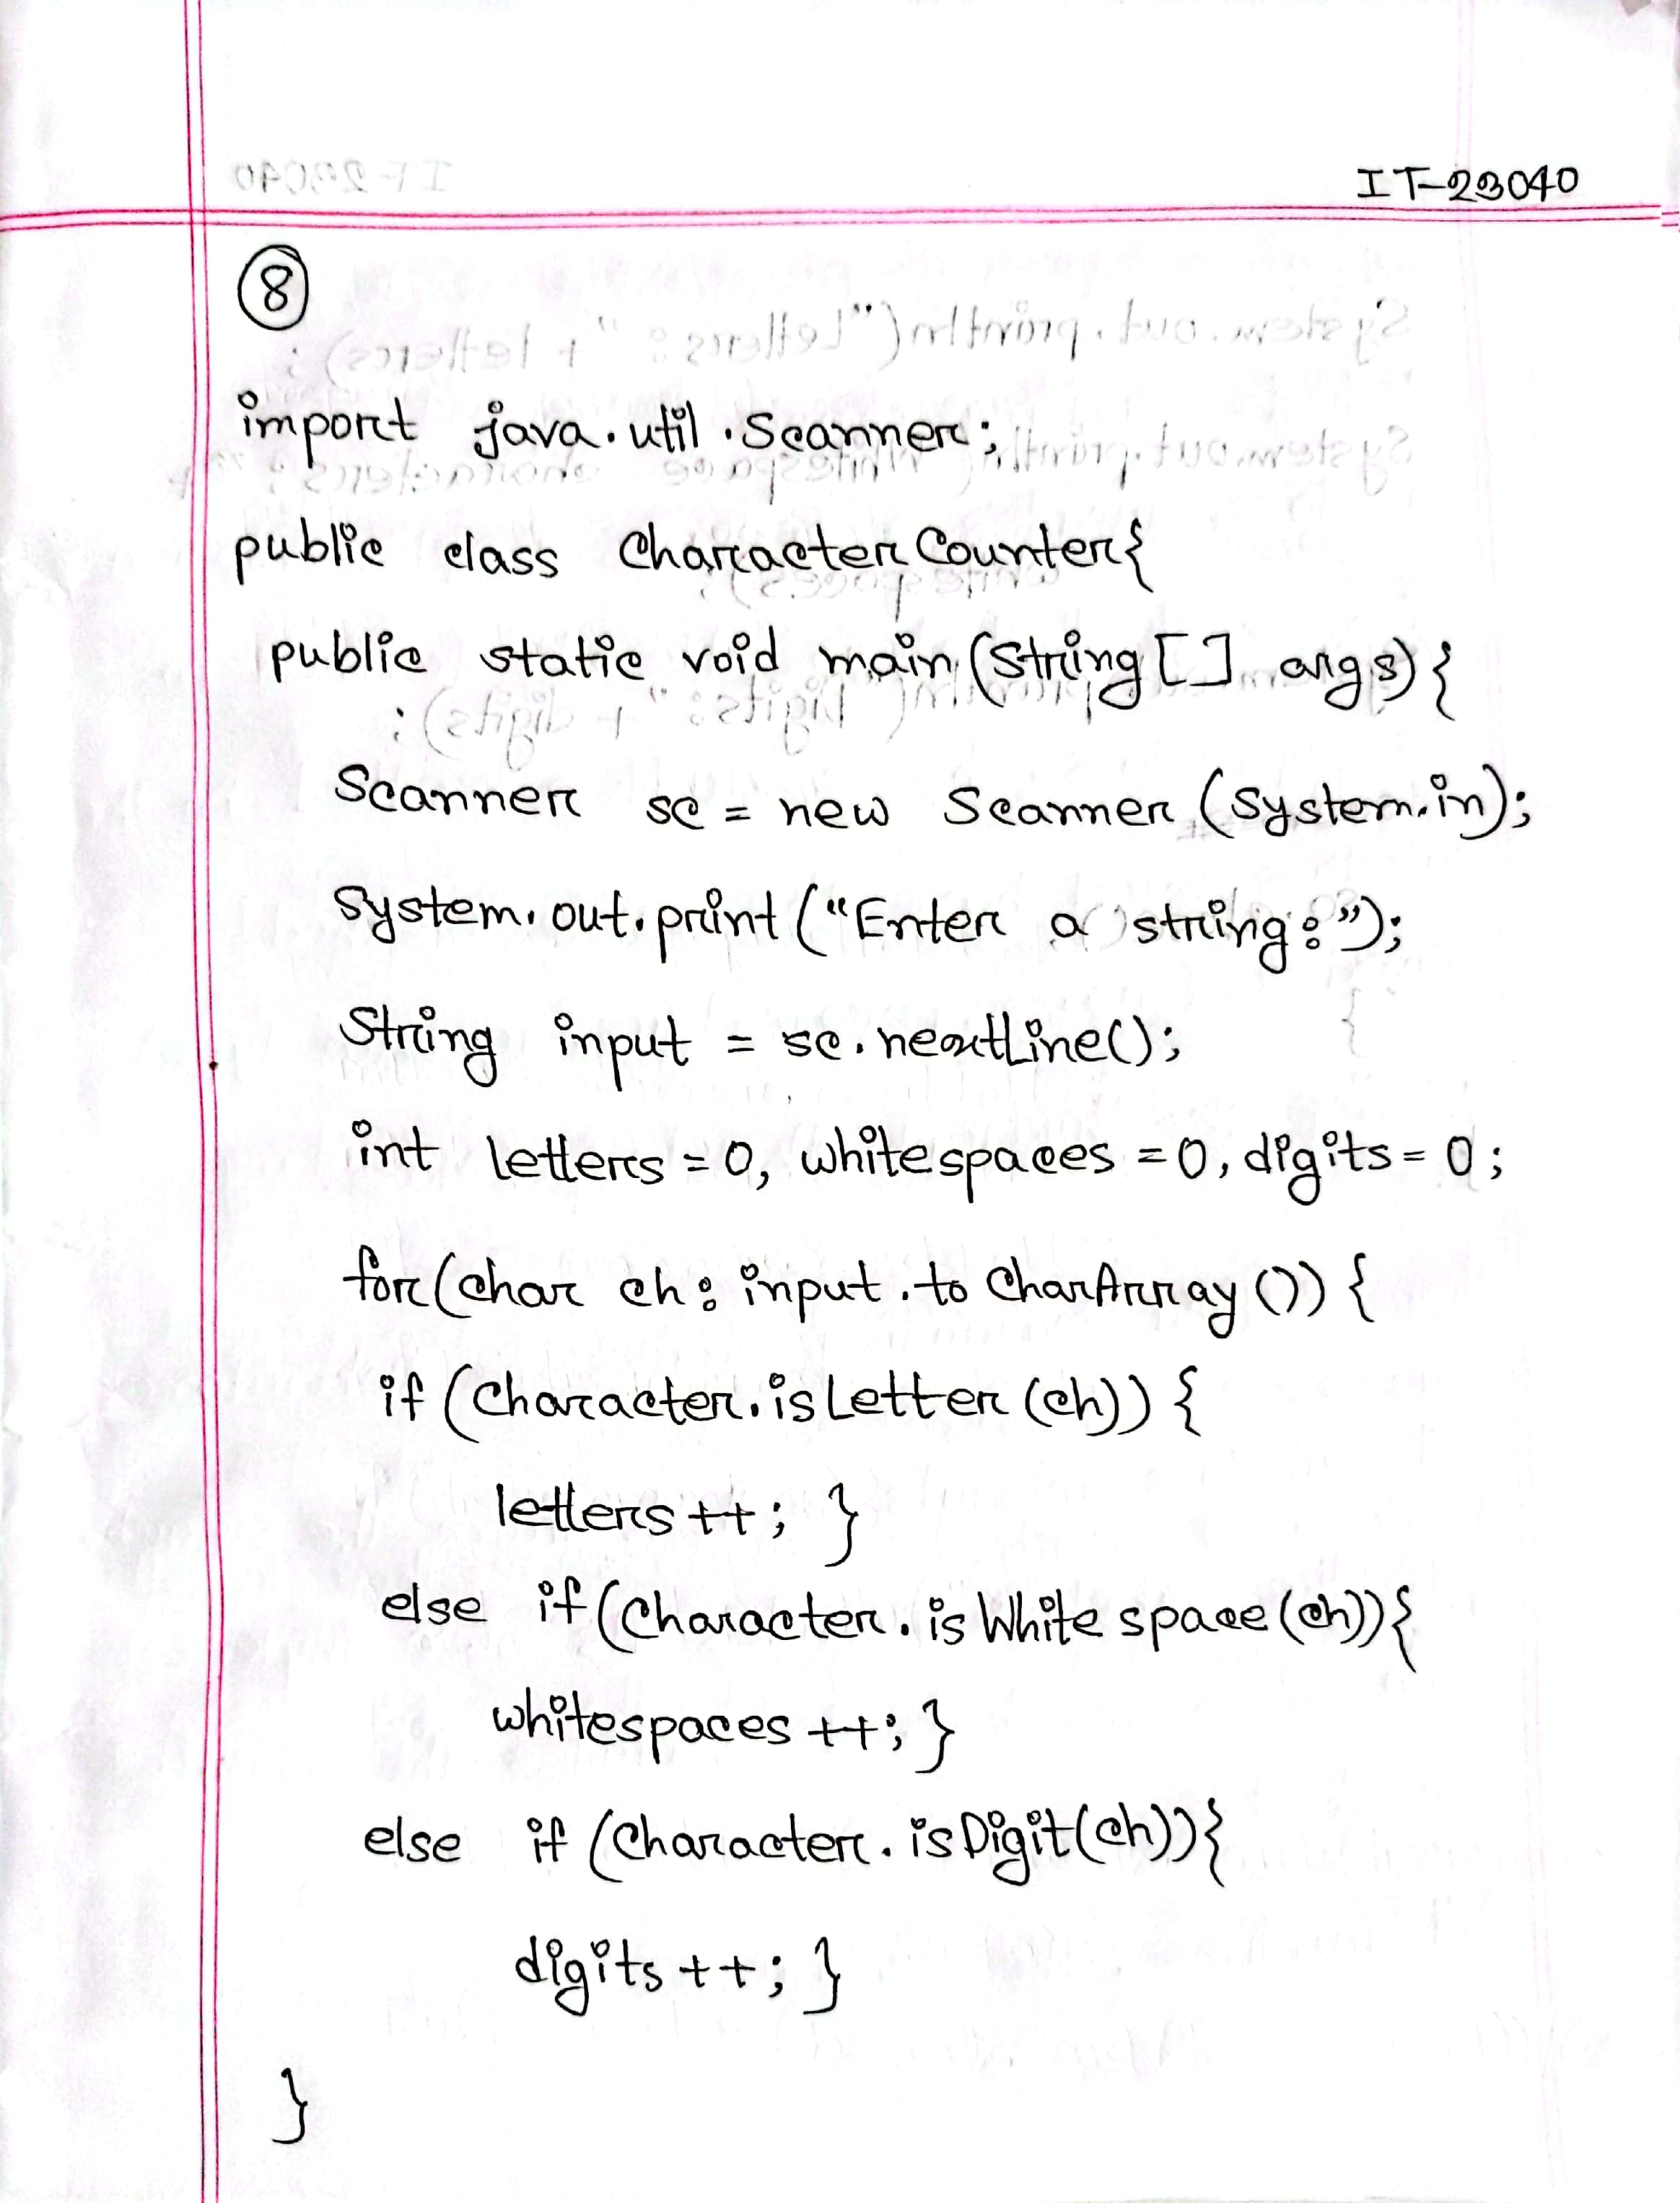 IT-23040
8
import java.util.Scanner;
public class CharacterCounter{
public static void main(String[] args){
Scanner sc = new Scanner (System.in);
System.out.print("Enter a string:");
String input = sc.nextLine();
int letters = 0, whitespaces = 0, digits = 0;
for(char ch: input.toCharArray()) {
if (Character.isLetter (ch)) {
letters ++; }
else if(Character.isWhitespace(ch)){
whitespaces ++; }
else if (Character.isDigit(ch)){
digits ++; }
}